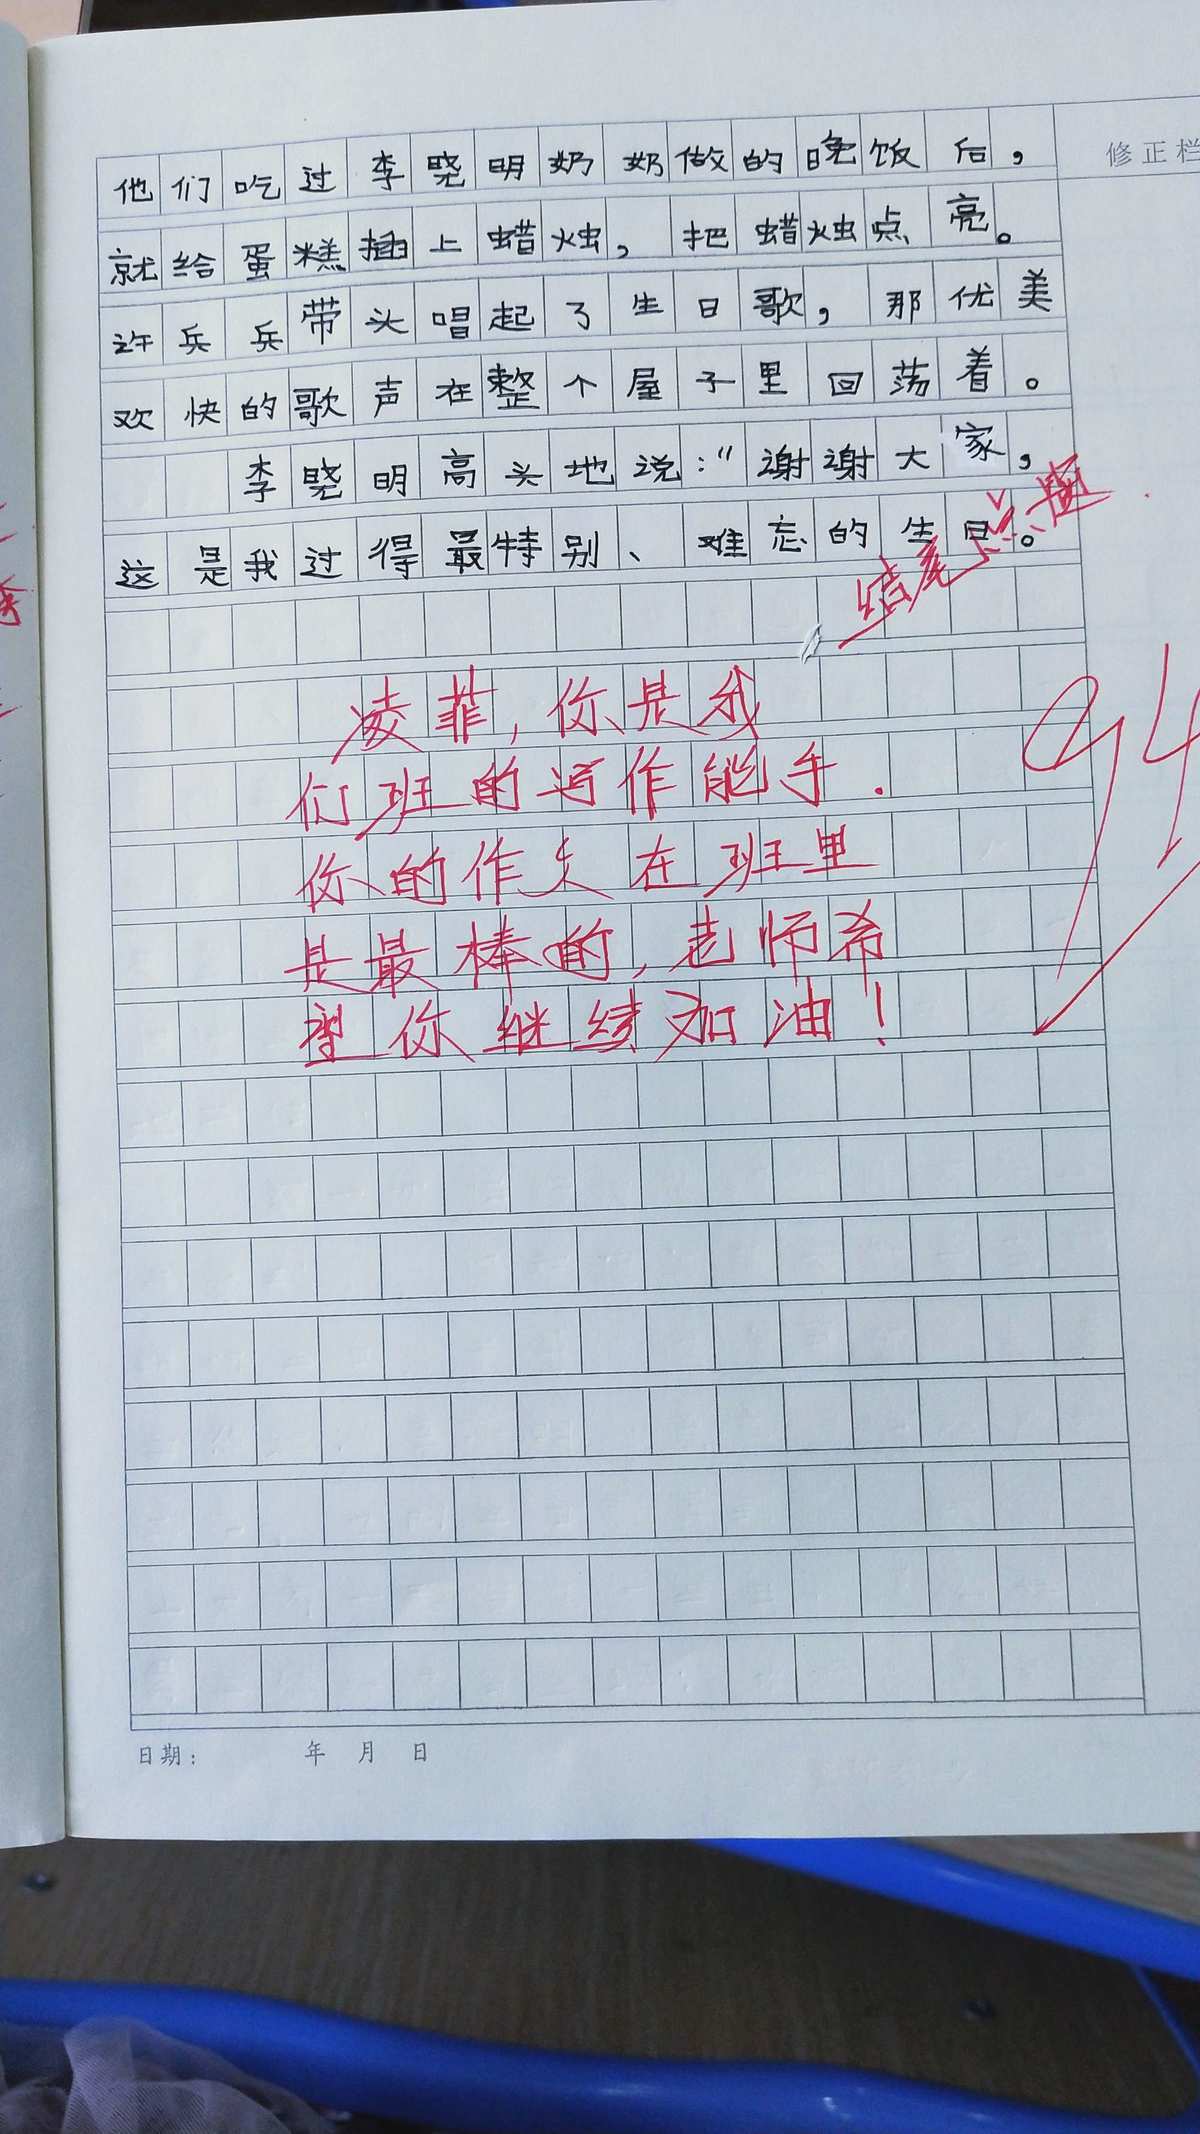 修正栏
他们吃过李晓明奶奶做的晚饭后，
就给蛋糕插上蜡烛，把蜡烛点亮。
许兵兵带头唱起了生日歌，那优美
欢快的歌声在整个屋子里回荡着。
李晓明高头地说：“谢谢大家，
这是我过得最特别、难忘的生日。
结尾点题
凌菲，你是我
们班的写作能手.
你的作文在班里
是最棒的，老师希
望你继续加油！
94
日期： 年 月 日